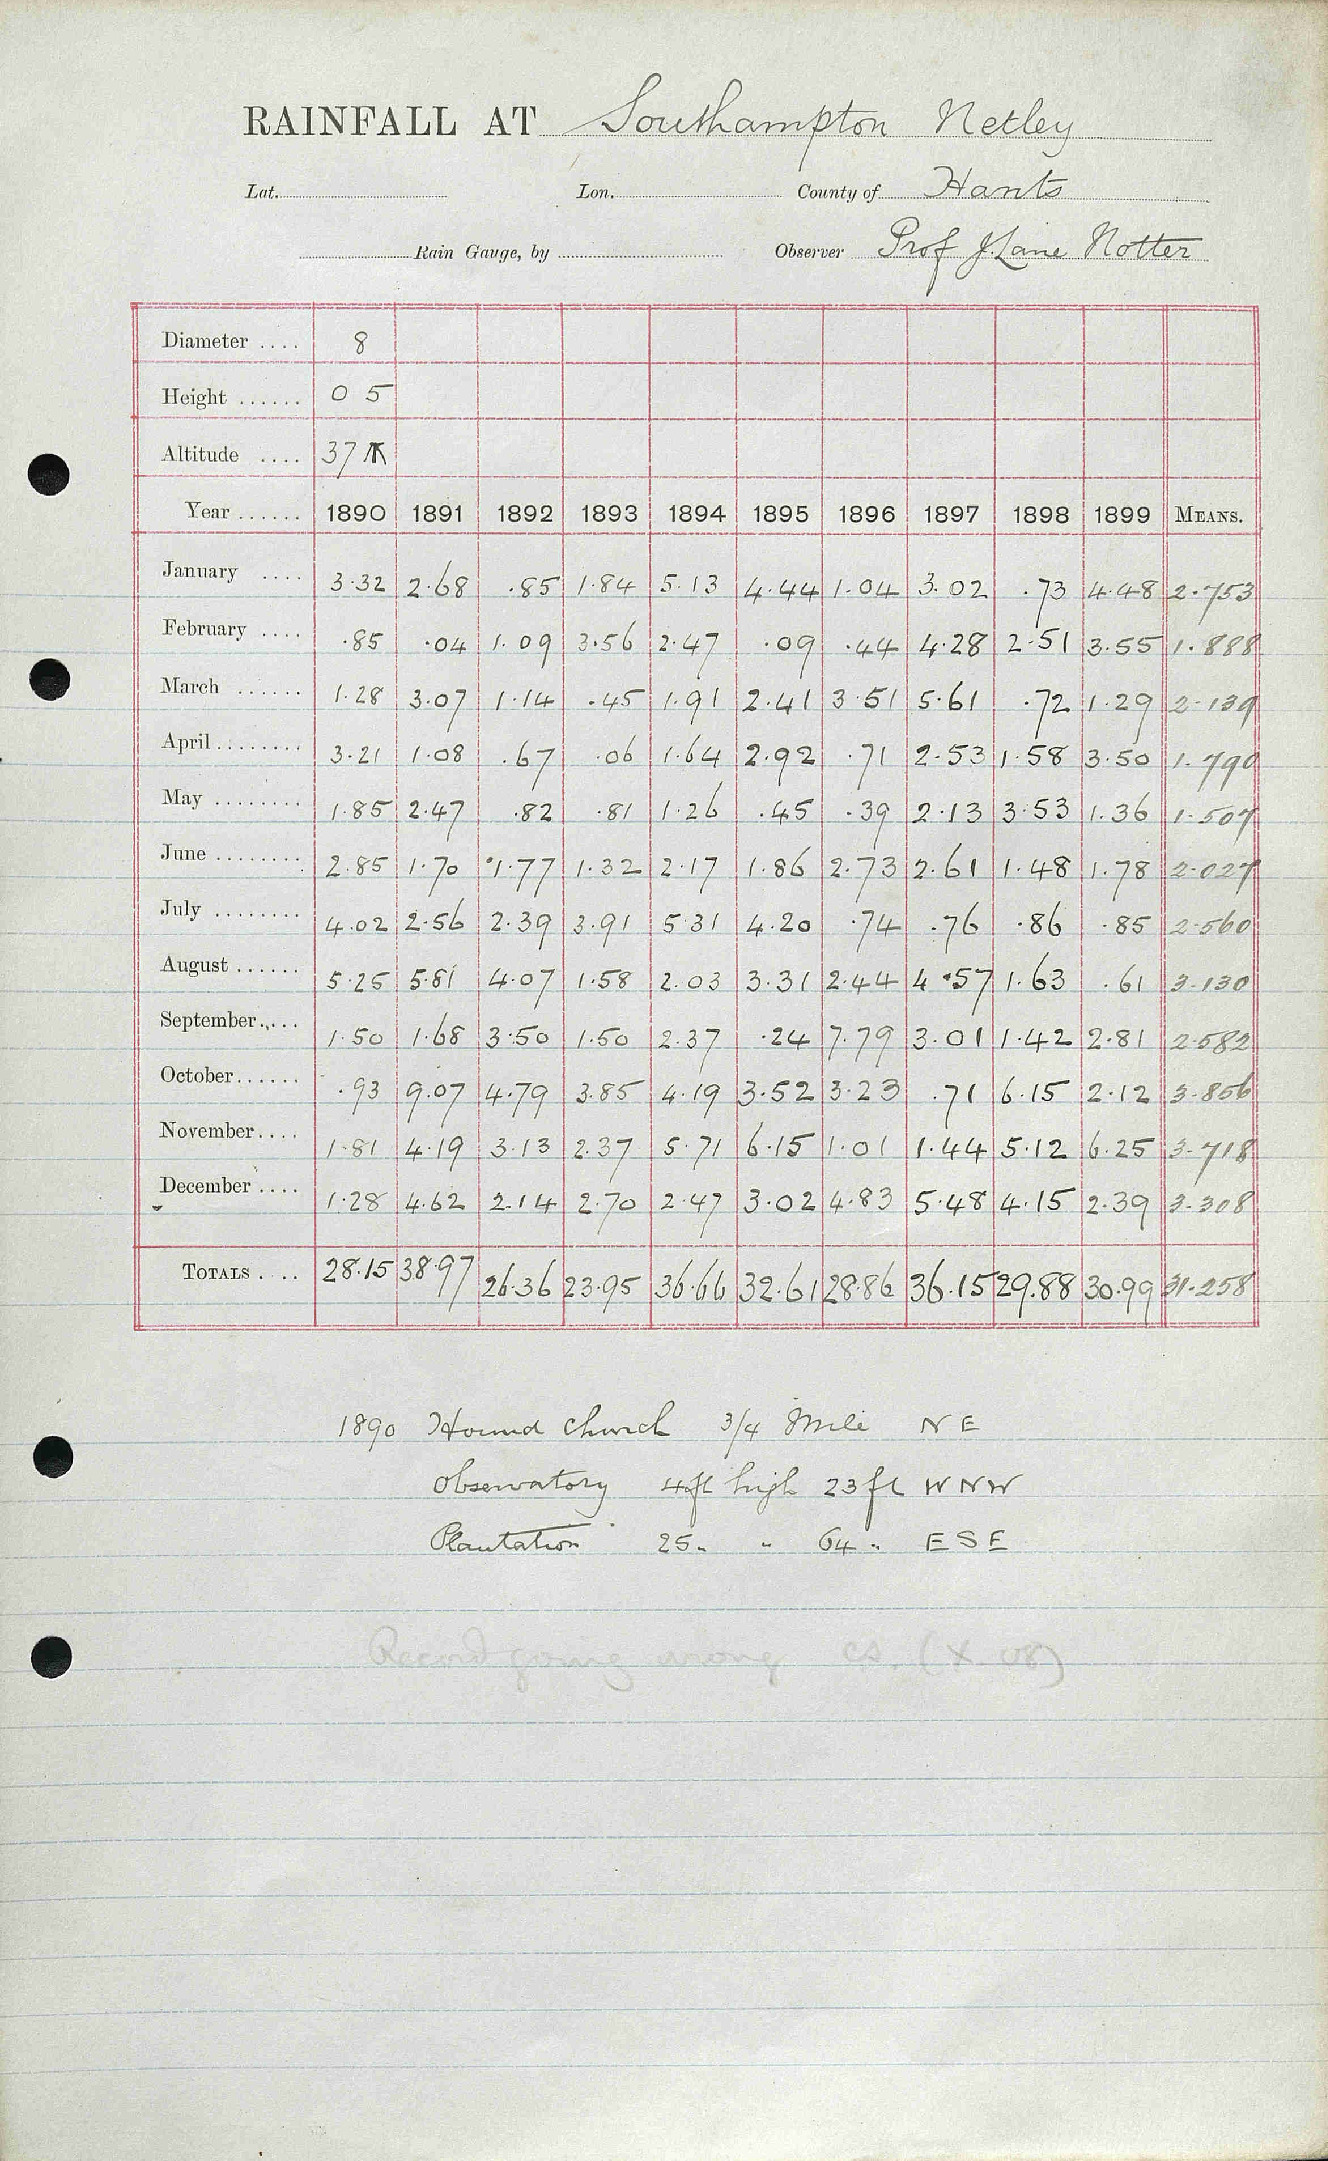 RAINFALL AT Southampton Netley
Lat. Lon. County of Hants
Rain Gauge, by Observer Prof J. Lane Notter
Diameter .... 8
Height ...... 0 5
Altitude .... 37
Year ...... 1890 1891 1892 1893 1894 1895 1896 1897 1898 1899 MEANS.
January .... 3.32 2.68 .85 1.84 5.13 4.44 1.04 3.02 .73 4.48 2.753
February .... .85 .04 1.09 3.56 2.47 .09 .44 4.28 2.51 3.55 1.888
March ...... 1.28 3.07 1.14 .45 1.91 2.41 3.51 5.61 .72 1.29 2.139
April ........ 3.21 1.08 .67 .06 1.64 2.92 .71 2.53 1.58 3.50 1.790
May ........ 1.85 2.47 .82 .81 1.26 .45 .39 2.13 3.53 1.36 1.507
June ........ 2.85 1.70 1.77 1.32 2.17 1.86 2.73 2.61 1.48 1.78 2.027
July ........ 4.02 2.56 2.39 3.91 5.31 4.20 .74 .76 .86 .85 2.560
August ...... 5.25 5.81 4.07 1.58 2.03 3.31 2.44 4.57 1.63 .61 3.130
September..... 1.50 1.68 3.50 1.50 2.37 .24 7.79 3.01 1.42 2.81 2.582
October...... .93 9.07 4.79 3.85 4.19 3.52 3.23 .71 6.15 2.12 3.856
November.... 1.81 4.19 3.13 2.37 5.71 6.15 1.01 1.44 5.12 6.25 3.718
December .... 1.28 4.62 2.14 2.70 2.47 3.02 4.83 5.48 4.15 2.39 3.308
TOTALS .... 28.15 38.97 26.36 23.95 36.66 32.61 28.86 36.15 29.88 30.99 31.258
1890 Hound Church 3/4 Mile N E
Observatory 4ft high 23ft W N W
Plantation 25 " " 64 " E S E
Record going wrong cs. (X. 08)